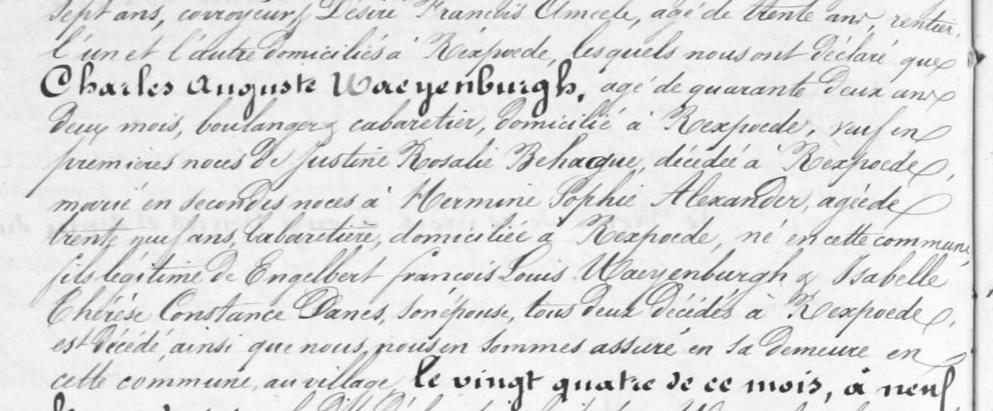 sept ans, corroyeur & Désiré Francois Amcele, agé de trente ans, rentier,
l'un et l'autre domiciliés à Rexpoede, lesquels nous ont déclaré que
Charles Auguste Waeyenburgh, agé de quarante deux ans
deux mois, boulanger & cabaretier, domicilié à Rexpoede, veuf en
premieres noces de Justine Rosalie Behague, décédée à Rexpoede,
marié en secondes noces à Hermine Sophie Alexander, agée de
trente neuf ans, Cabaretière, domiciliée à Rexpoede, né en cette commune,
fils légitime de Engelbert francois Louis Waeyenburgh & Isabelle
Thérèse Constance Danes, son épouse, tous deux décédés à Rexpoede,
est décédé, ainsi que nous nous en sommes assuré en sa demeure en
cette commune, au village, le vingt quatre de ce mois, à neuf